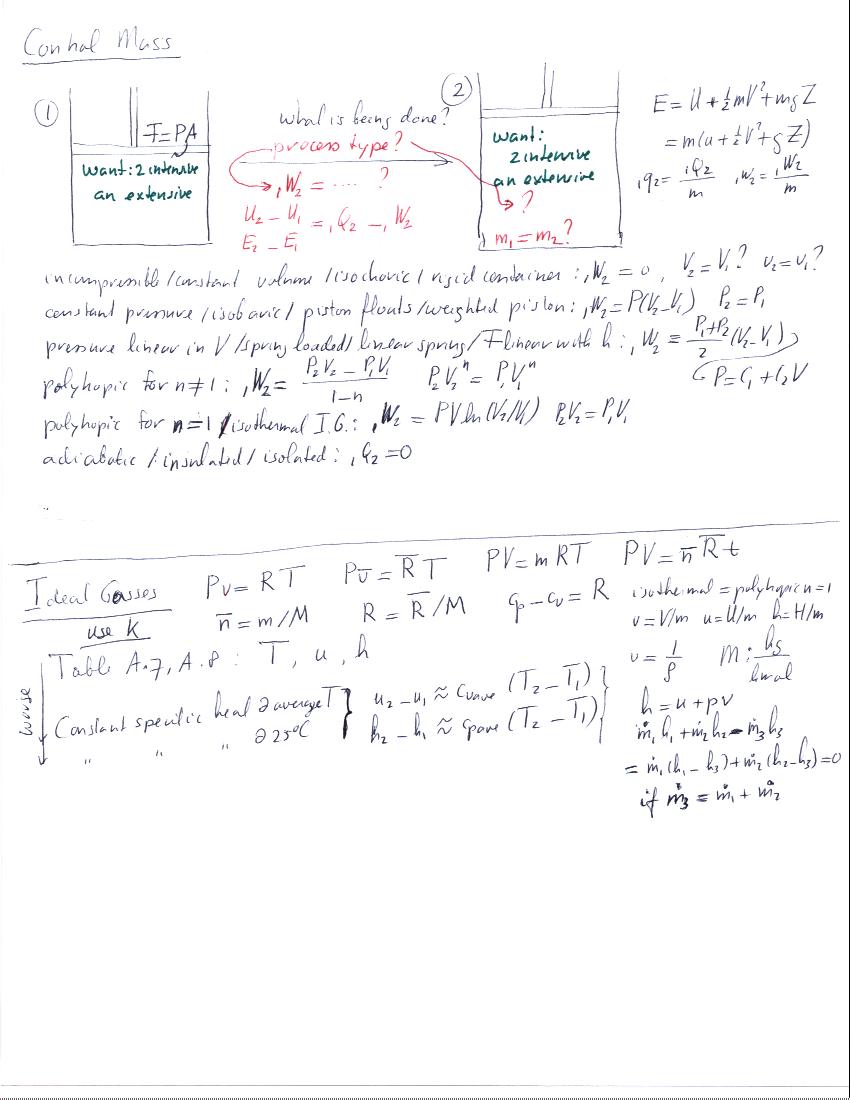 Control Mass
①
F=PA
want: 2 intensive
an extensive
what is being done?
process type?
₁W₂ = ···· ?
U₂ – U₁ = ₁Q₂ – ₁W₂
E₂ – E₁
②
want:
2 intensive
an extensive
?
m₁ = m₂?
E = U + ½mV² + mgZ
= m(u + ½V² + gZ)
₁q₂ = ₁Q₂/m ₁w₂ = ₁W₂/m
incompressible/constant volume/isochoric/rigid container: ₁W₂ = 0, V₂ = V₁? v₂ = v₁?
constant pressure/isobaric/piston floats/weighted piston: ₁W₂ = P(V₂–V₁) P₂ = P₁
pressure linear in V/spring loaded/linear spring/F linear with h: ₁W₂ = (P₁+P₂)/2 (V₂–V₁)
P = C₁ + C₂V
polytropic for n≠1: ₁W₂ = (P₂V₂ – P₁V₁)/(1–n) P₂V₂ⁿ = P₁V₁ⁿ
polytropic for n=1/isothermal I.G.: ₁W₂ = PV ln(V₂/V₁) P₂V₂ = P₁V₁
adiabatic/insulated/isolated: ₁Q₂ = 0
Ideal Gasses
use K
Pv = RT P v̄ = R̄T PV = mRT PV = n̄R̄t
n̄ = m/M R = R̄/M cp – cv = R
Table A.7, A.8: T, u, h
worse
Constant specific heat @ average T } u₂ – u₁ ≈ Cvave (T₂ – T₁)
" " " @ 25°C } h₂ – h₁ ≈ Cpave (T₂ – T₁)
isothermal = polytropic n=1
v = V/m u = U/m h = H/m
v = 1/ρ M: kg/kmol
h = u + pv
ṁ₁h₁ + ṁ₂h₂ – ṁ₃h₃
= ṁ₁(h₁ – h₃) + ṁ₂(h₂–h₃) = 0
if ṁ₃ = ṁ₁ + ṁ₂